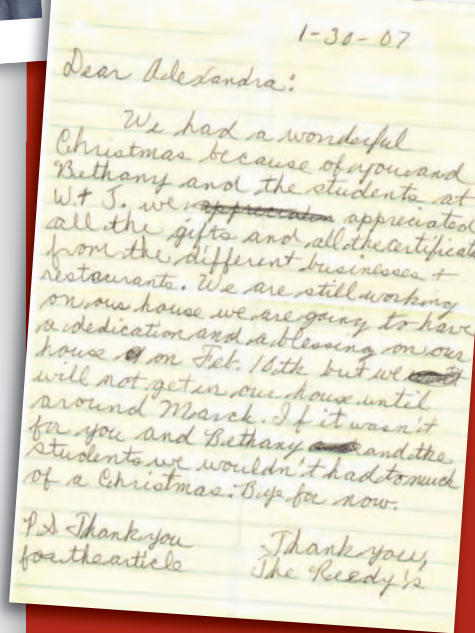 1-30-07
Dear Alexandra:
We had a wonderful
Christmas because of you and
Bethany and the students at
W.+ J. we appreciated
all the gifts and all the certificate
from the different businesses +
restaurants. We are still working
on our house we are going to have
a dedication and a blessing on our
house on Feb. 10th but we
will not get in our house until
around March. If it wasn't
for you and Bethany and the
students we wouldn't had to much
of a Christmas. Bye for now.
P.S Thank you
for the article
Thank you,
The Reedy's